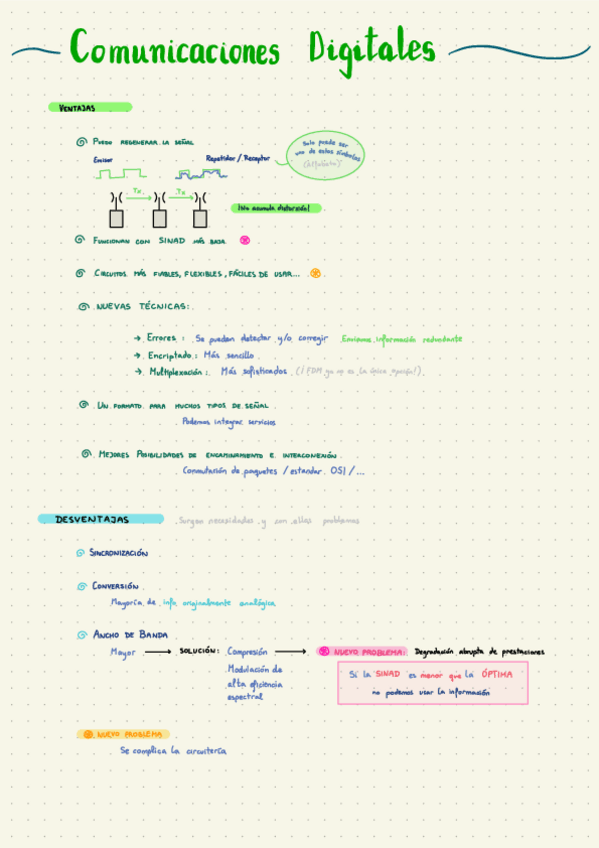 Comunicaciones Digitales
VENTAJAS
PUEDO REGENERAR LA SEÑAL
Emisor
Repetidor / Receptor
Solo puede ser
uno de estos símbolos
(alfabeto)
Tx
Tx
¡No acumula distorsión!
FUNCIONAN CON SINAD MÁS BAJA
CIRCUITOS MÁS FIABLES, FLEXIBLES, FÁCILES DE USAR...
NUEVAS TÉCNICAS:
→ Errores: Se pueden detectar y/o corregir Enviamos información redundante
→ Encriptado: Más sencillo
→ Multiplexación: Más sofisticados (¡FDM ya no es la única opción!)
UN FORMATO PARA MUCHOS TIPOS DE SEÑAL
Podemos integrar servicios
MEJORES POSIBILIDADES DE ENCAMINAMIENTO E INTERCONEXIÓN
Conmutación de paquetes / estandar OSI / ...
DESVENTAJAS
Surgen necesidades y con ellas problemas
SINCRONIZACIÓN
CONVERSIÓN
Mayoría de info originalmente analógica
ANCHO DE BANDA
Mayor → SOLUCIÓN: Compresión → NUEVO PROBLEMA: Degradación abrupta de prestaciones
Modulación de
alta eficiencia
espectral
Si la SINAD es menor que la ÓPTIMA
no podemos usar la información
NUEVO PROBLEMA
Se complica la circuitería